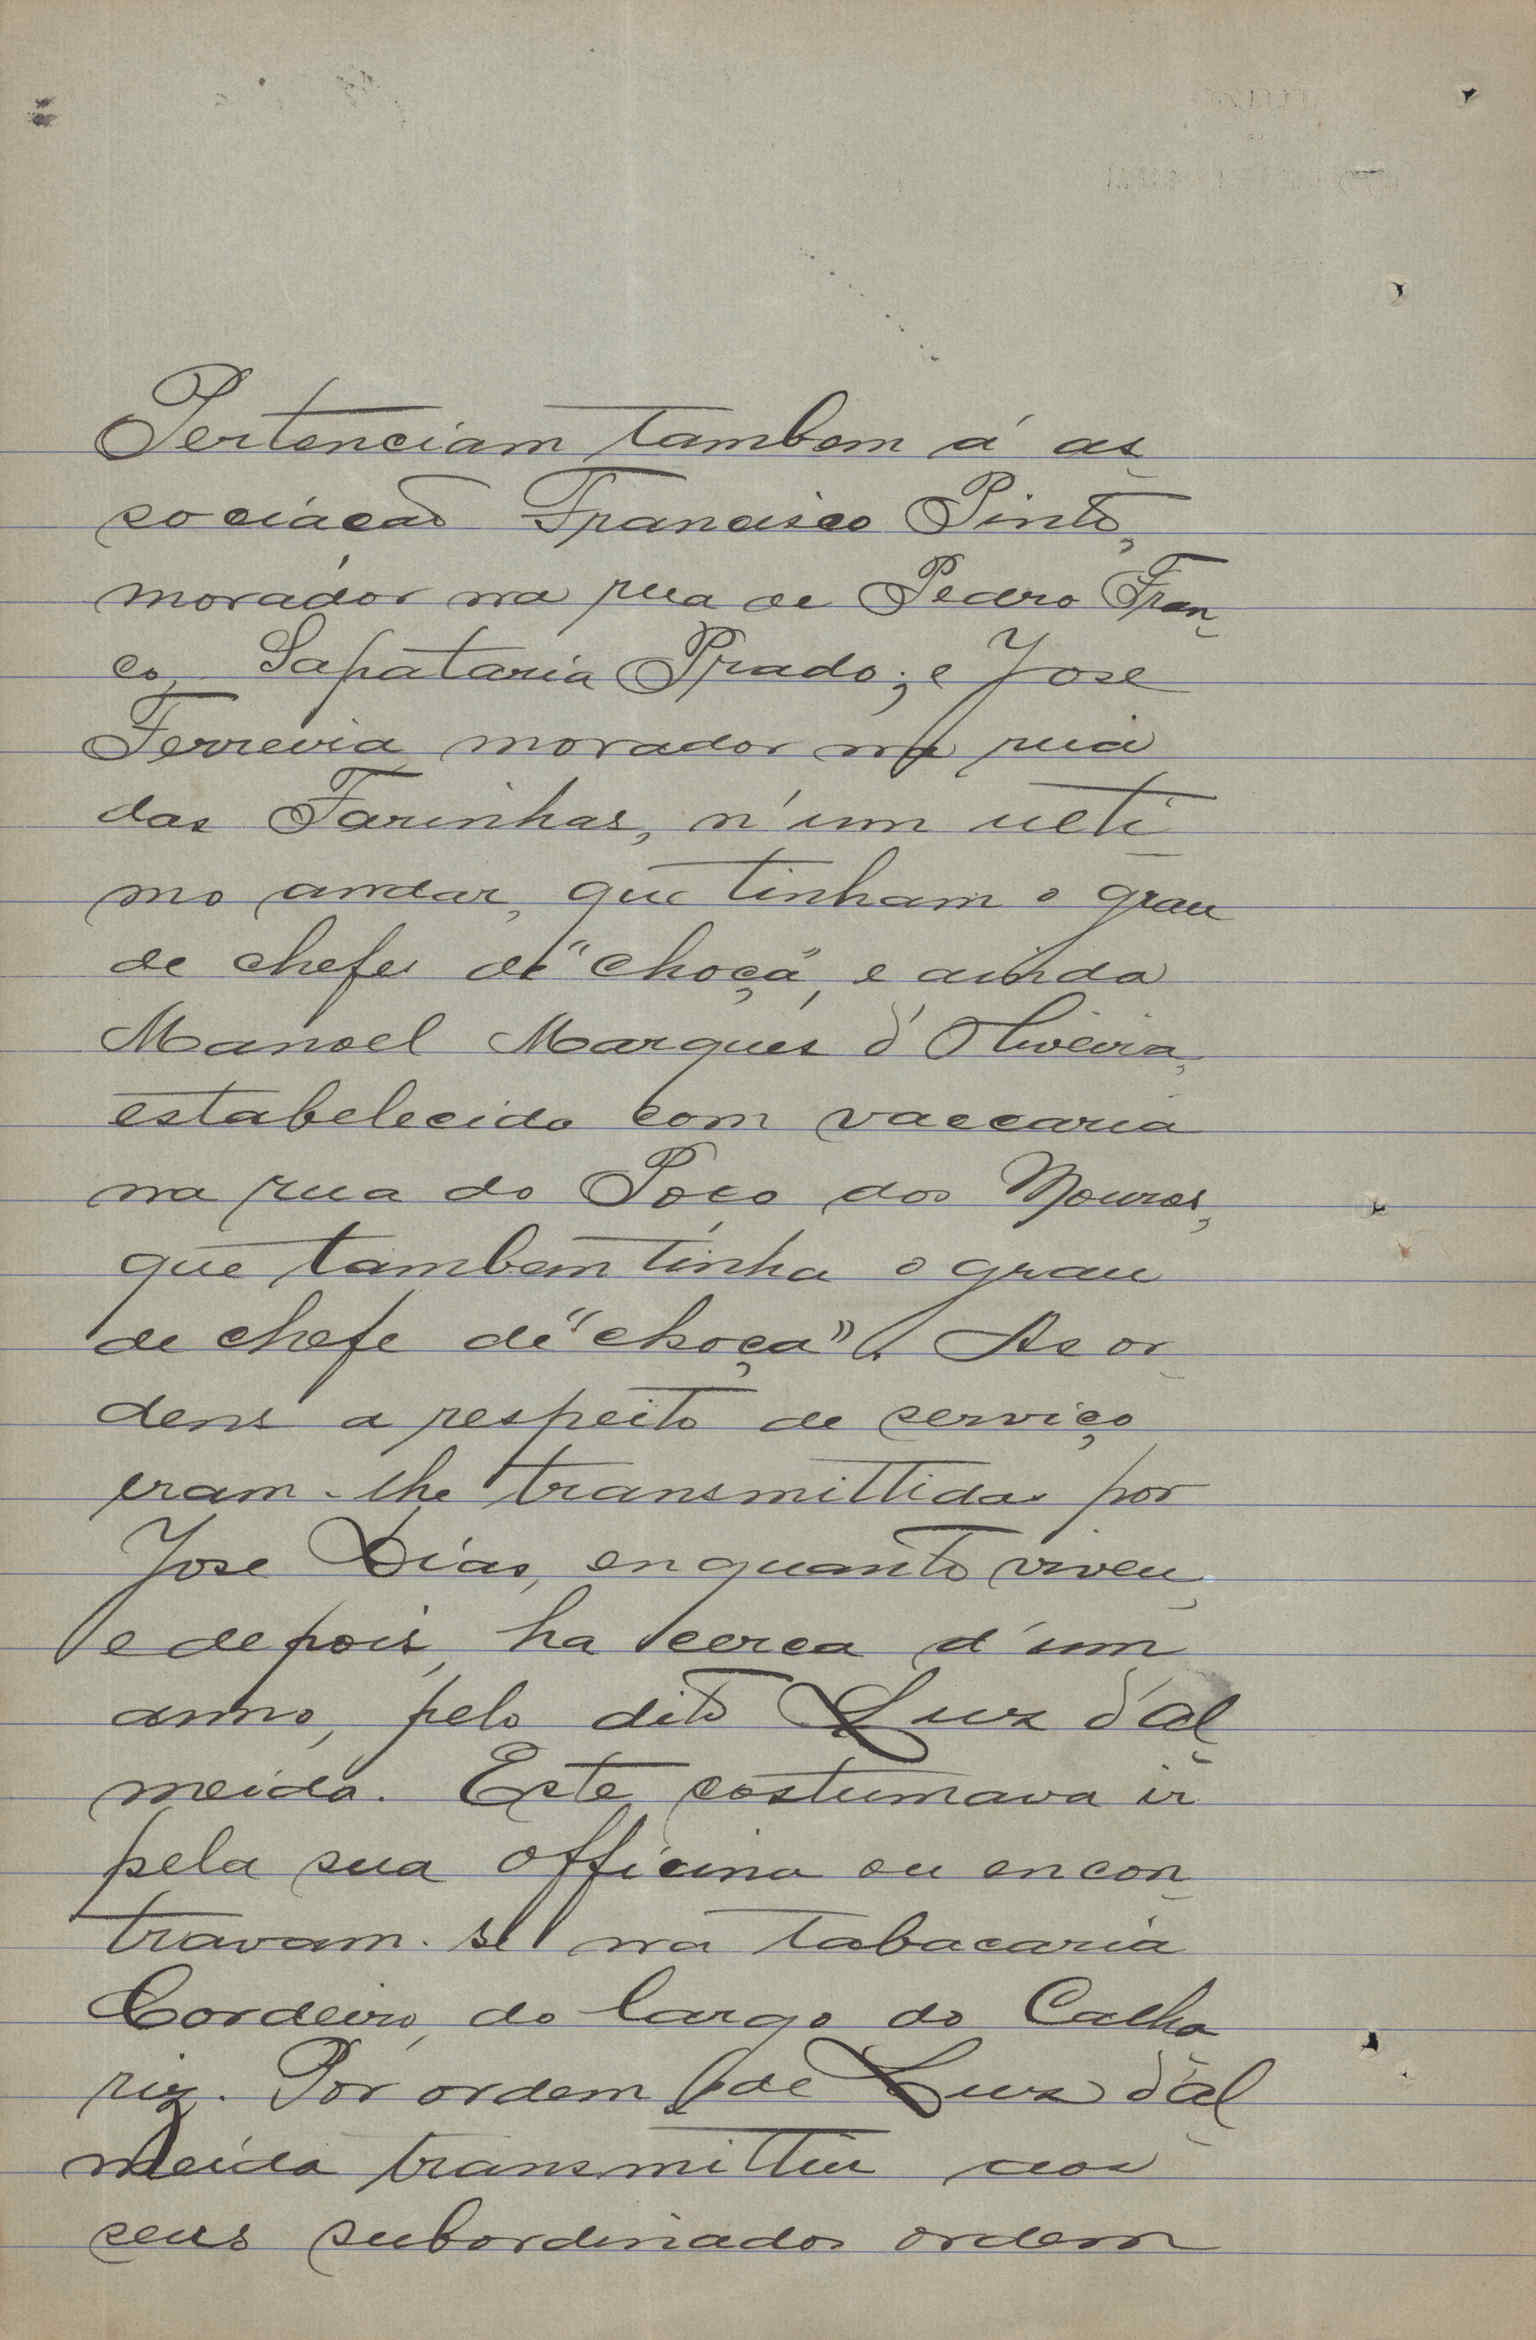 Pertenciam tambem á as-
sociacão Francisco Pinto,
morador na rua de Pedro Fran-
co, Sapataria Prado; e Jose
Ferreira morador na rua
das Farinhas, n'um ulti-
mo andar, que tinham o grau
de chefes de "choça", e ainda
Manoel Marques d'Oliveira,
estabelecido com vaccaria
na rua do Poço dos Mouros,
que tambem tinha o grau
de chefe de "choça". As or-
dens a respeito de serviço
eram-lhe transmittidas por
Jose Dias, enquanto viveu,
e depois, ha cerca d'um
anno, pelo dito Luz d'Al-
meida. Este costumava ir
pela sua officina ou encon-
travam-se na tabacaria
Cordeiro, do largo do Calha
riz. Por ordem de Luz d'Al-
meida transmittiu aos
seus subordinados ordem